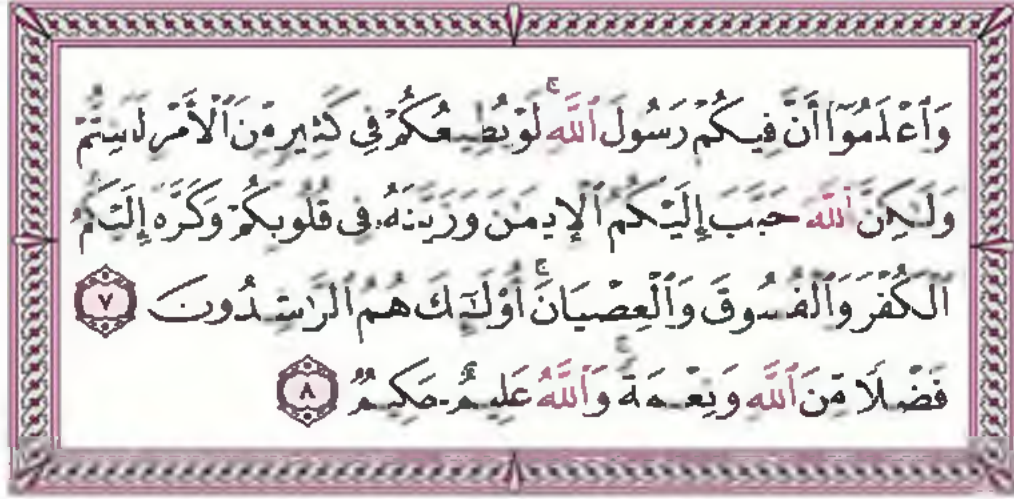 وَٱعْلَمُوٓا۟ أَنَّ فِيكُمْ رَسُولَ ٱللَّهِ ۚ لَوْ يُطِيعُكُمْ فِى كَثِيرٍ مِّنَ ٱلْأَمْرِ لَعَنِتُّمْ
وَلَـٰكِنَّ ٱللَّهَ حَبَّبَ إِلَيْكُمُ ٱلْإِيمَـٰنَ وَزَيَّنَهُۥ فِى قُلُوبِكُمْ وَكَرَّهَ إِلَيْكُمُ
ٱلْكُفْرَ وَٱلْفُسُوقَ وَٱلْعِصْيَانَ ۚ أُو۟لَـٰٓئِكَ هُمُ ٱلرَّٰشِدُونَ ٧
فَضْلًا مِّنَ ٱللَّهِ وَنِعْمَةً ۚ وَٱللَّهُ عَلِيمٌ حَكِيمٌ ٨